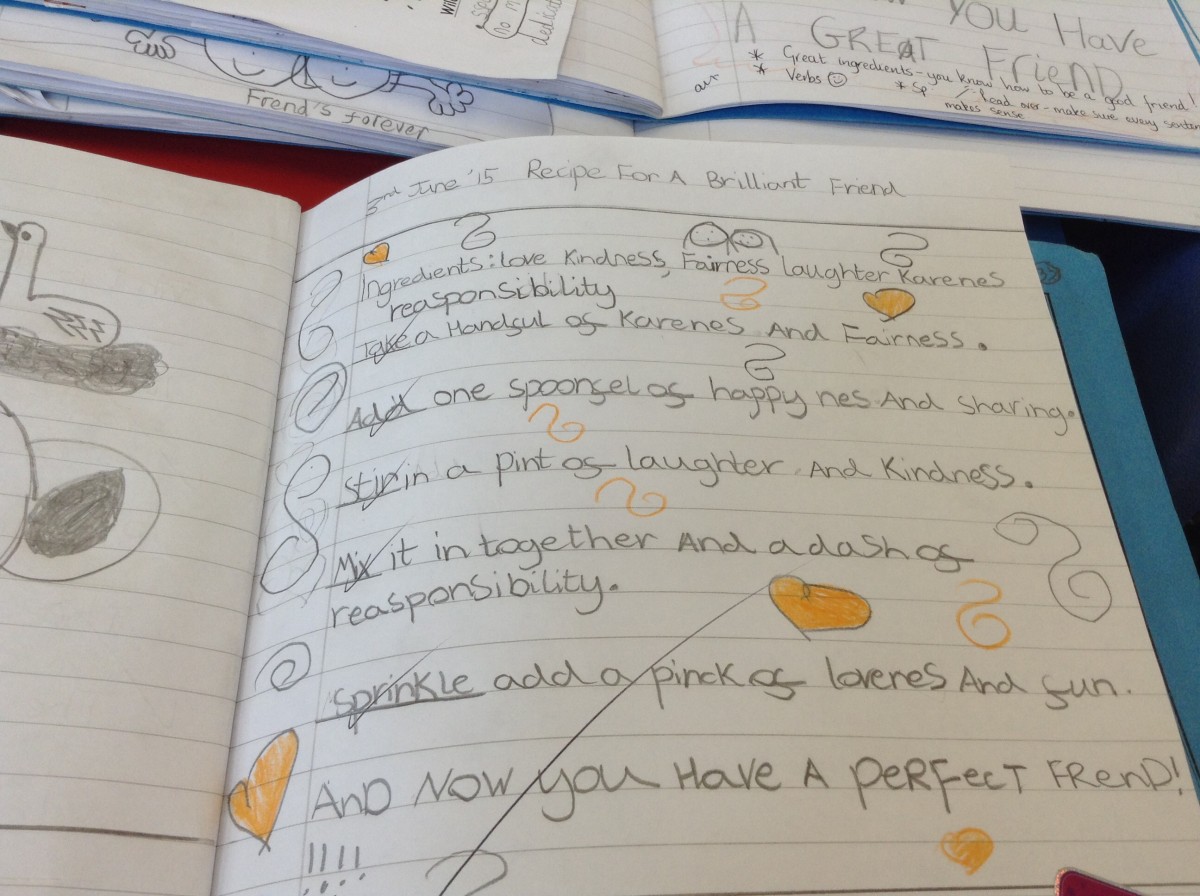 No m
dedicat
YOU HAVE
A GREAT FRIEND
* Great ingredients - you know how to be a good friend!
* Verbs ☺
* sp
read over - make sure every senten
makes sense
Frend's forever
3rd June '15 Recipe For A Brilliant Friend
Ingredients: love Kindness, Fairness laughter Karenes
reasponsibility
Take a Handful of Karenes And Fairness.
Add one spoonfel of happy nes And sharing.
stir in a pint of laughter And Kindness.
Mix it in together And a dash of
reasponsibility.
sprinkle add a pinck of lovenes And fun.
AnD NOW you HAVE A PeRFecT FRenD!
!!!!